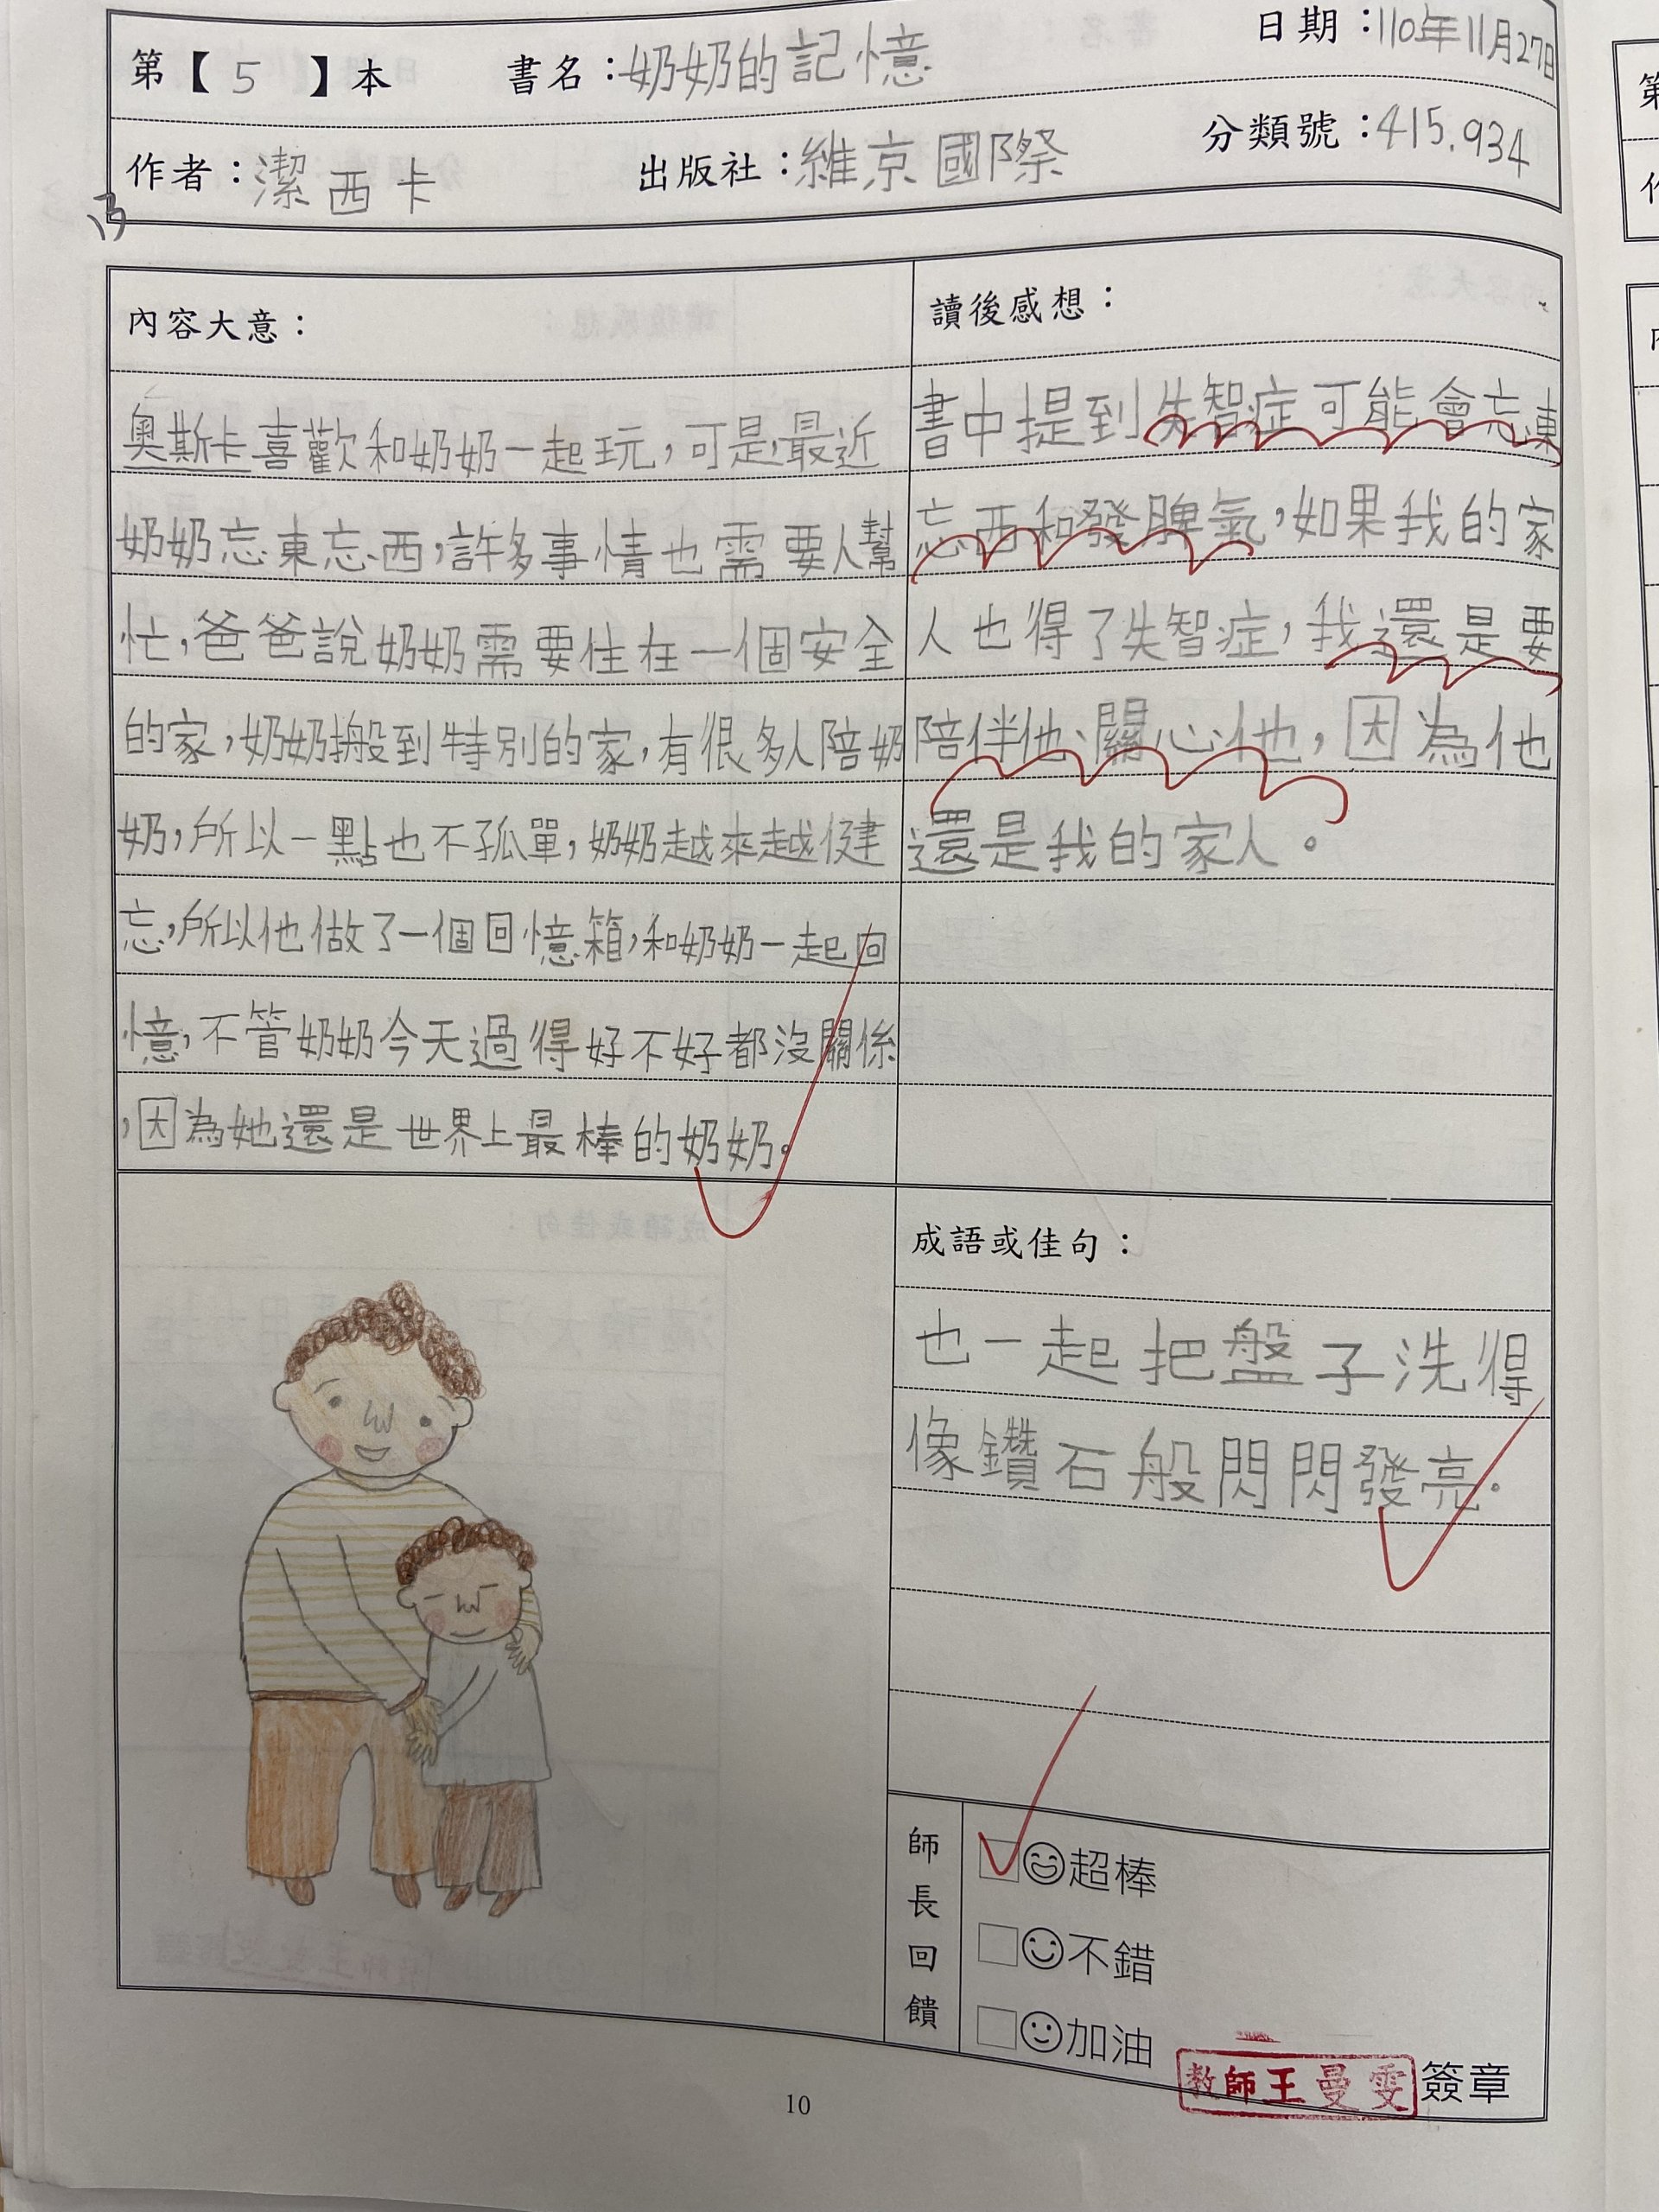 第【 5 】本 書名：奶奶的記憶 日期：110年11月27日
作者：潔西卡 出版社：維京國際 分類號：415.934
13
內容大意：
奧斯卡喜歡和奶奶一起玩，可是，最近
奶奶忘東忘西，許多事情也需要人幫
忙，爸爸說奶奶需要住在一個安全
的家，奶奶搬到特別的家，有很多人陪奶
奶，所以一點也不孤單，奶奶越來越健
忘，所以他做了一個回憶箱，和奶奶一起回
憶，不管奶奶今天過得好不好都沒關係
，因為她還是世界上最棒的奶奶。
讀後感想：
書中提到失智症可能會忘東
忘西和發脾氣，如果我的家
人也得了失智症，我還是要
陪伴他、關心他，因為他
還是我的家人。
成語或佳句：
也一起把盤子洗得
像鑽石般閃閃發亮。
師長回饋
超棒
不錯
加油
教師王曼雯 簽章
10